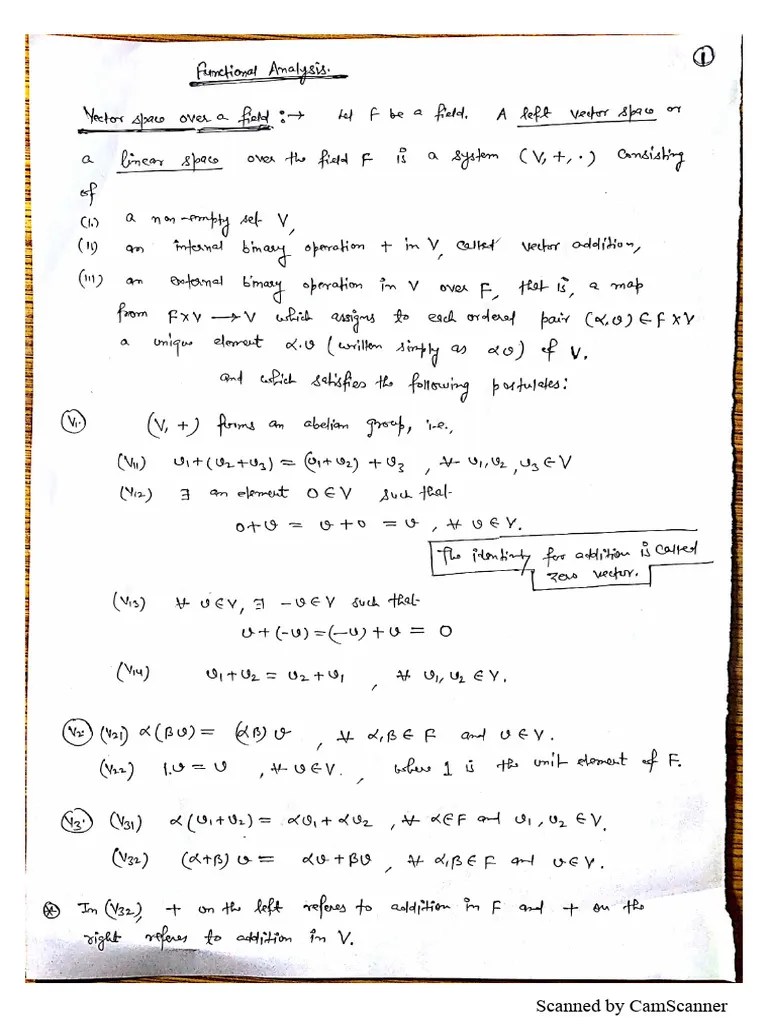 ①
Functional Analysis.
Vector space over a field :→ Let F be a field. A left vector space or
a linear space over the field F is a system (V, +, ·) consisting
of
(i.) a non-empty set V,
(ii) an internal binary operation + in V, called vector addition,
(iii) an external binary operation in V over F, that is, a map
from F×V → V which assigns to each ordered pair (α,υ) ∈ F×V
a unique element α.υ (written simply as αυ) of V.
and which satisfies the following postulates:
(V1.) (V, +) forms an abelian group, i.e.,
(V11) υ1+(υ2+υ3) = (υ1+υ2)+υ3 , ∀ υ1,υ2,υ3 ∈ V
(V12) ∃ an element 0 ∈ V such that
0+υ = υ+0 = υ , ∀ υ ∈ V.
The identity for addition is called
zero vector.
(V13) ∀ υ ∈ V, ∃ -υ ∈ V such that
υ+(-υ) = (-υ)+υ = 0
(V14) υ1+υ2 = υ2+υ1 , ∀ υ1,υ2 ∈ V.
(V2.) (V21) α(βυ) = (αβ)υ , ∀ α,β ∈ F and υ ∈ V.
(V22) 1.υ = υ , ∀ υ ∈ V. , where 1 is the unit element of F.
(V3.) (V31) α(υ1+υ2) = αυ1+αυ2 , ∀ α∈F and υ1,υ2 ∈ V.
(V32) (α+β)υ = αυ+βυ , ∀ α,β ∈ F and υ∈V.
⊛ In (V32), + on the left referes to addition in F and + on the
right referes to addition in V.
Scanned by CamScanner